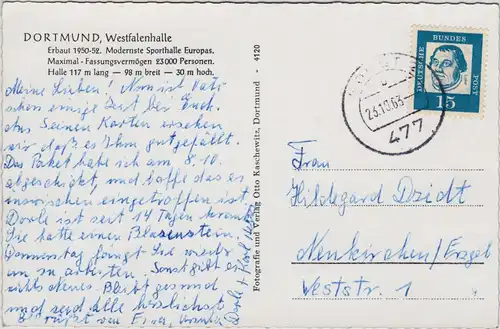 DORTMUND, Westfalenhalle
Erbaut 1950-52. Modernste Sporthalle Europas.
Maximal-Fassungsvermögen 23 000 Personen.
Halle 117 m lang — 98 m breit — 30 m hoch.
Meine Lieben! Nun ist Vati
schon einige Zeit bei Euch.
Aus Seinen Karten ersehen
wir daß es Ihm gut gefällt.
Das Paket habe ich am 8.10.
abgeschickt, und hoffe das es
inzwischen eingetroffen ist.
Dorle ist seit 14 Tagen krank
Sie hatte einen Blasenstein.
Donnerstag fängt Sie wieder
an zu arbeiten. Sonst gibt es
nichts neues. Bleibt gesund
und seid alle herzlichst
gegrüßt von Eurer
Dorle & Karl
Fotografie und Verlag Otto Kaschewitz, Dortmund - 4120
DEUTSCHE BUNDESPOST
15
23.10.63
477
Frau
Hildegard Dzidt
Neukirchen/Erzgeb
Weststr. 1